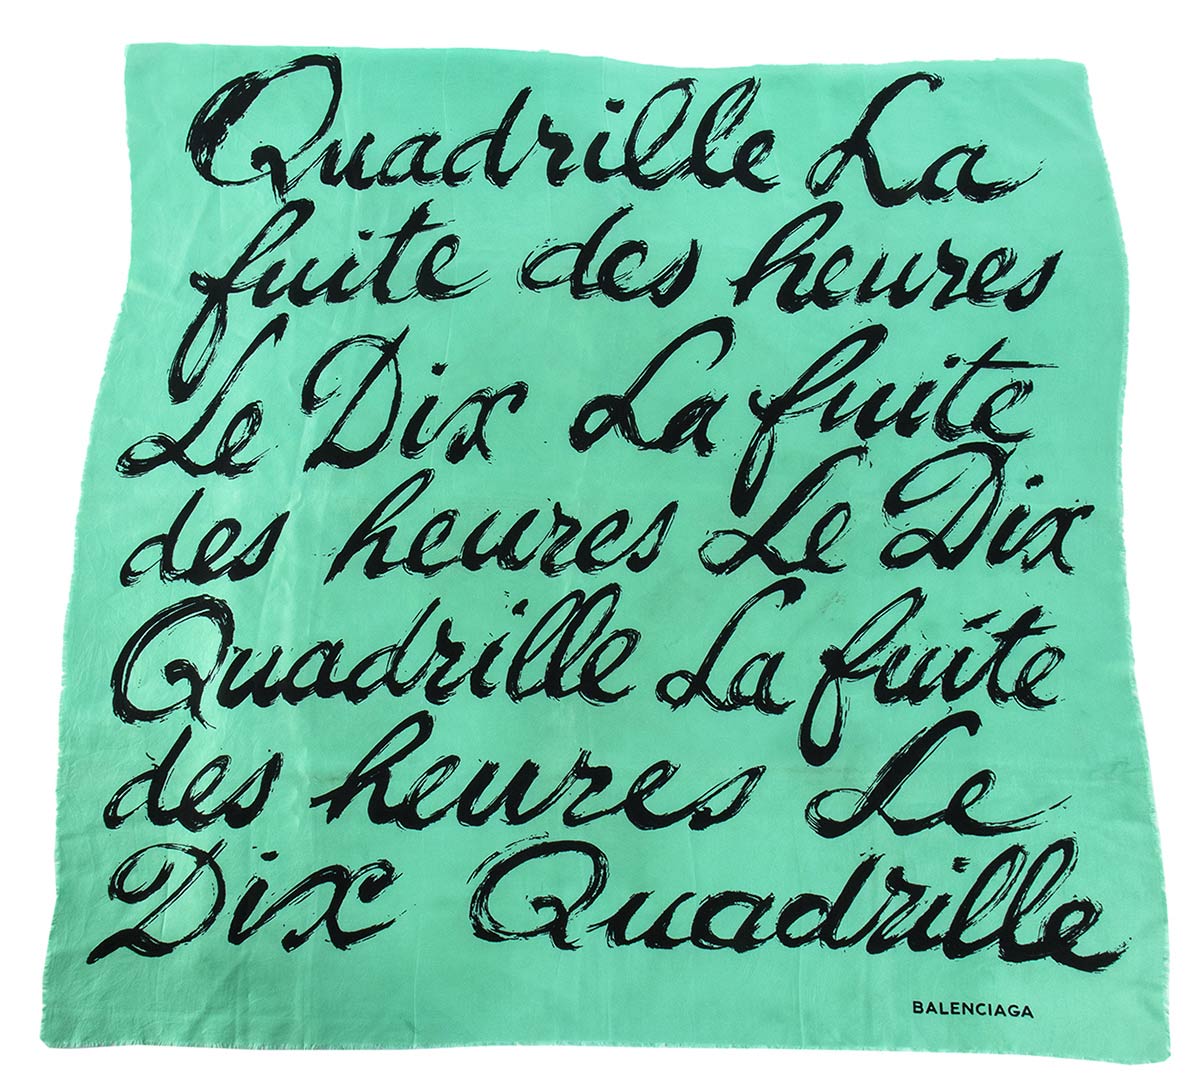 Quadrille La
fuite des heures
Le Dix La fuite
des heures Le Dix
Quadrille La fuite
des heures Le
Dix Quadrille
BALENCIAGA